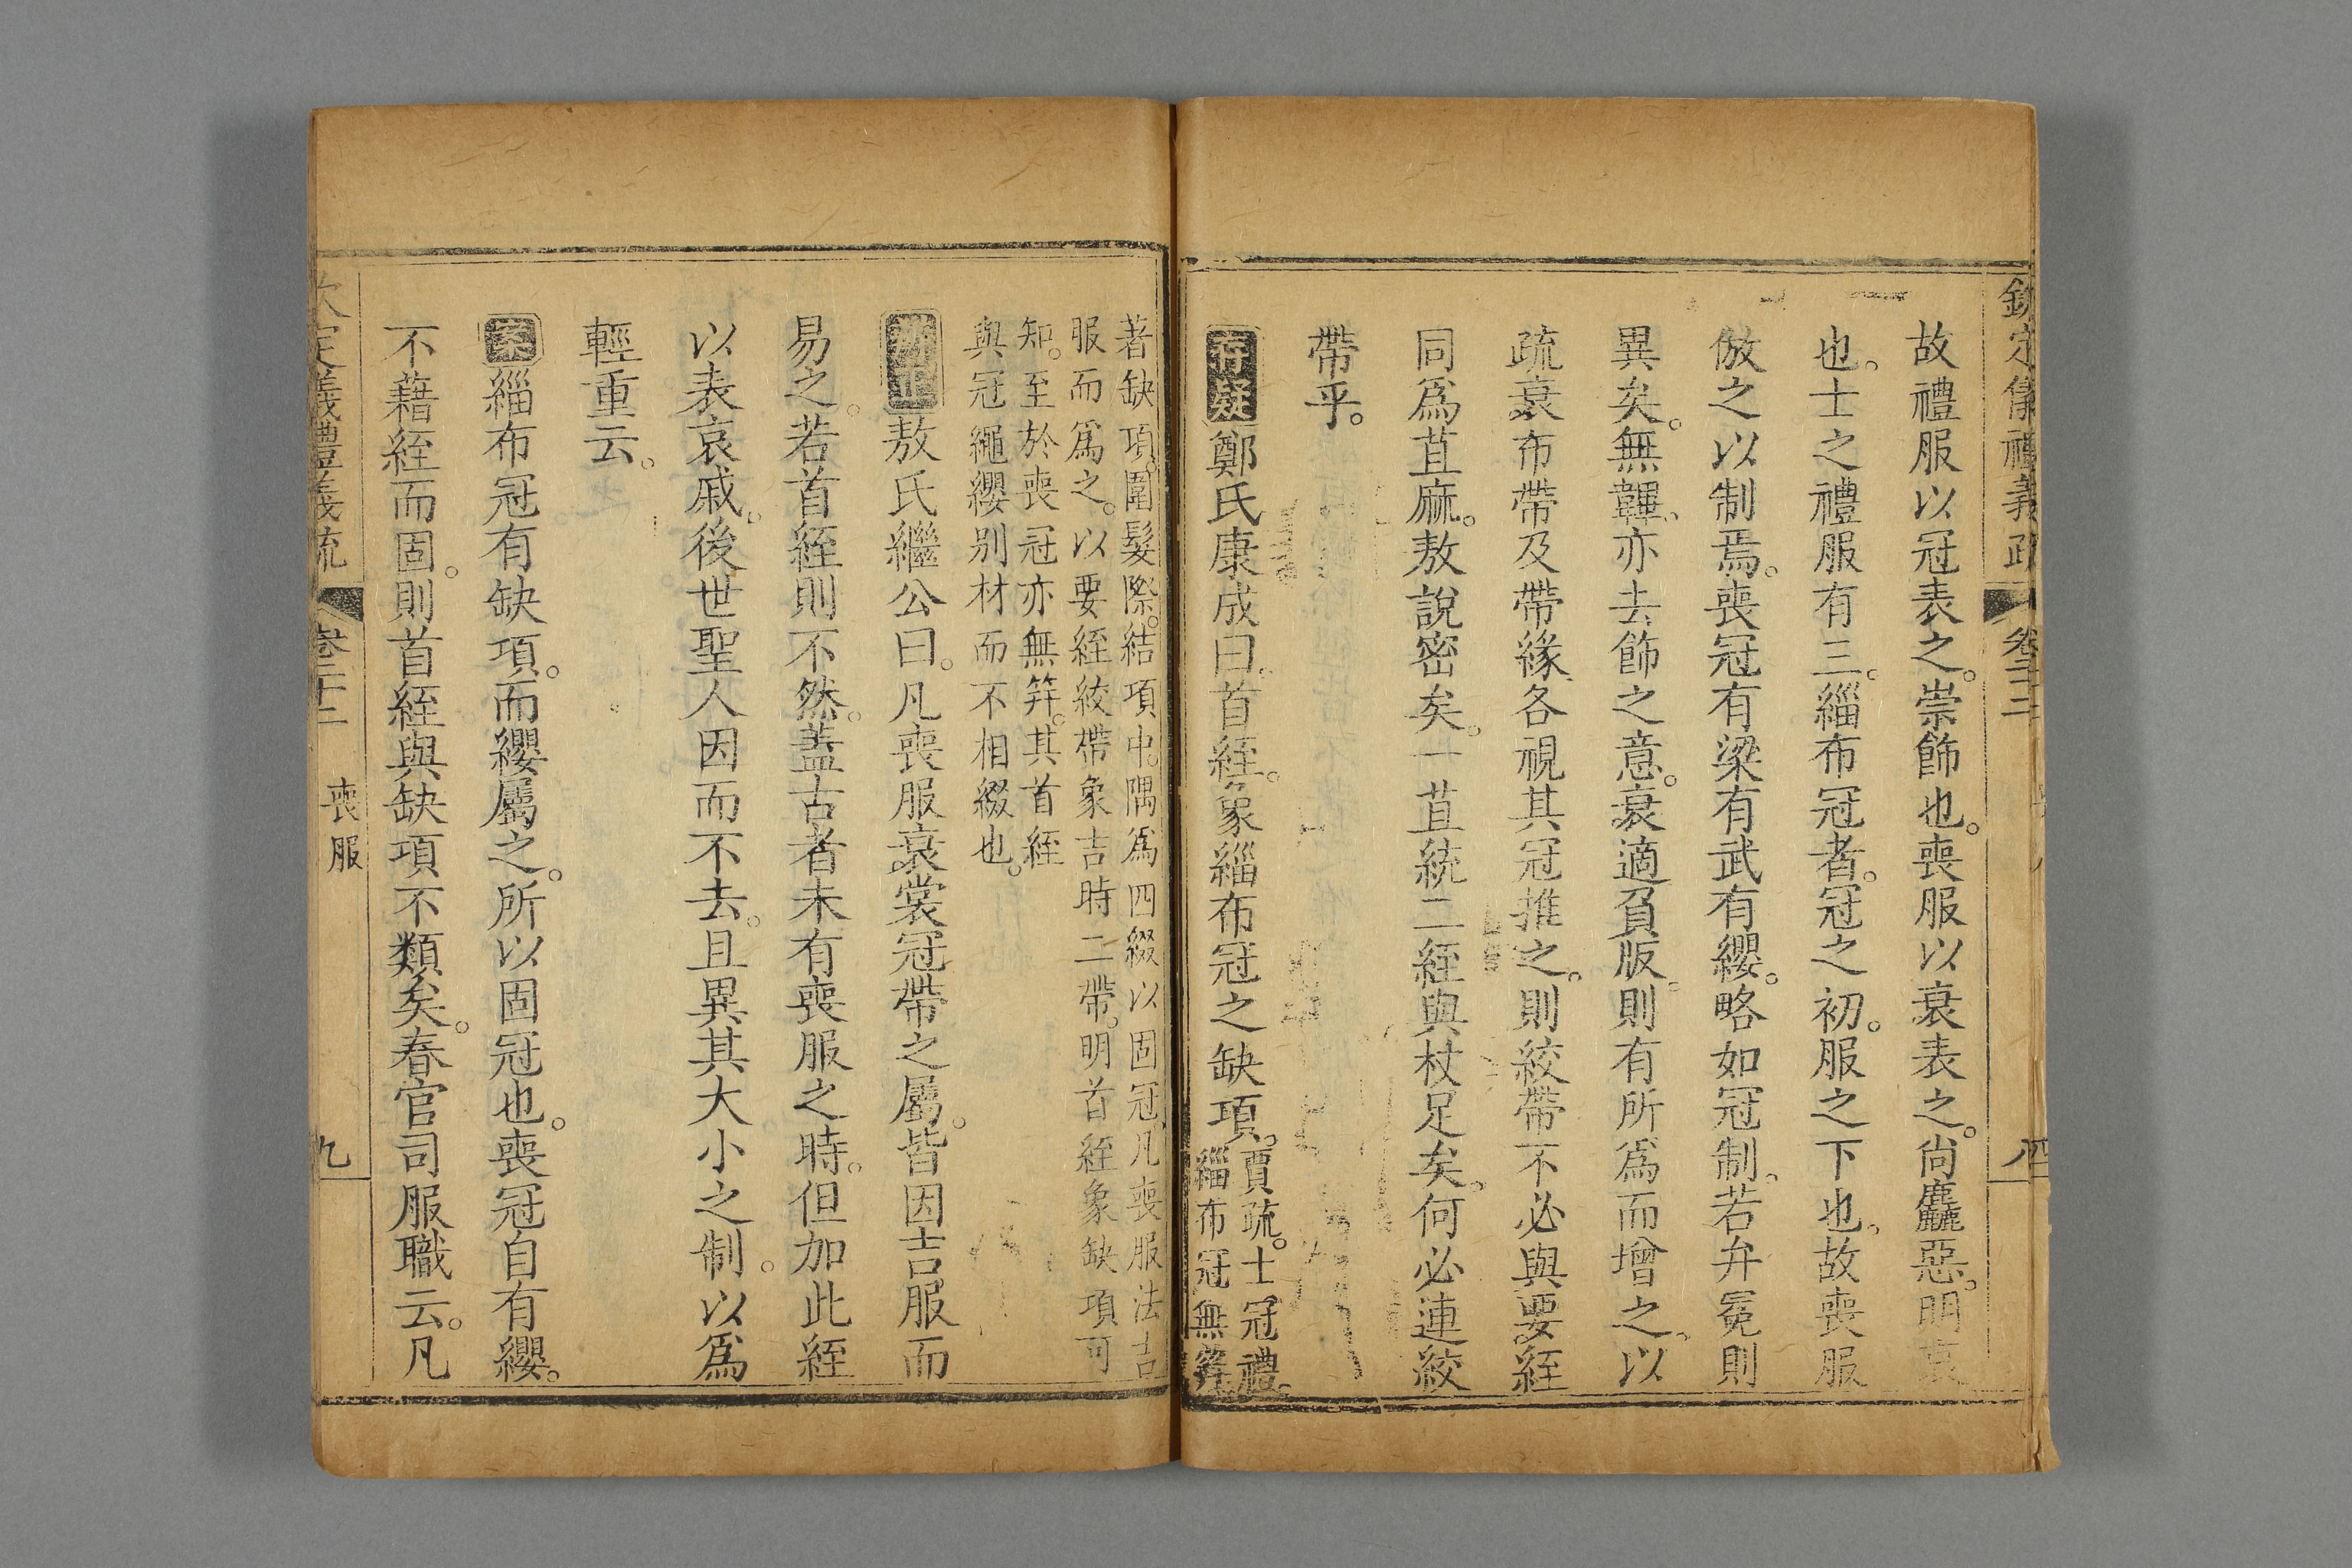 欽定儀禮義疏 卷二十二
故禮服以冠表之。崇飾也。喪服以衰表之。尙麤惡。明哀
也。士之禮服有三。緇布冠者。冠之初。服之下也。故喪服
倣之以制焉。喪冠有梁有武有纓。略如冠制。若弁冕則
異矣。無韠。亦去飾之意。衰適負版。則有所爲而增之。以
疏衰布帶及帶緣各視其冠推之。則絞帶不必與要絰
同爲苴麻。敖說密矣。一苴統二絰與杖足矣。何必連絞
帶乎。
存疑鄭氏康成曰。首絰。象緇布冠之缺項。賈疏。士冠禮。
緇布冠無筓。
著缺項。圍髮際。結項中。隅爲四綴以固冠。凡喪服法吉
服而爲之。以要絰絞帶象吉時二帶。明首絰象缺項可
知。至於喪冠亦無筓。其首絰
與冠繩纓别材而不相綴也。
辨正敖氏繼公曰。凡喪服衰裳冠帶之屬。皆因吉服而
易之。若首絰則不然。蓋古者未有喪服之時。但加此絰
以表哀戚。後世聖人因而不去。且異其大小之制。以爲
輕重云。
案緇布冠有缺項。而纓屬之。所以固冠也。喪冠自有纓。
不藉絰而固。則首絰與缺項不類矣。春官司服職云。凡
欽定義禮義疏 卷二十二 喪服 九